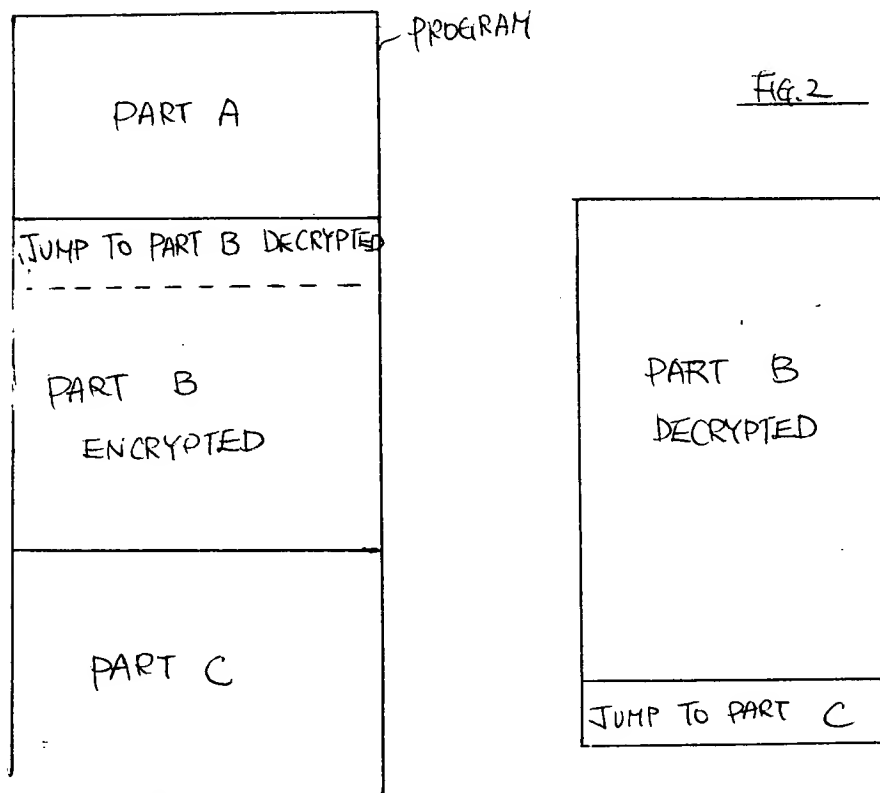 PROGRAM
FIG.2
PART A
JUMP TO PART B DECRYPTED
PART B
ENCRYPTED
PART B
DECRYPTED
PART C
JUMP TO PART C